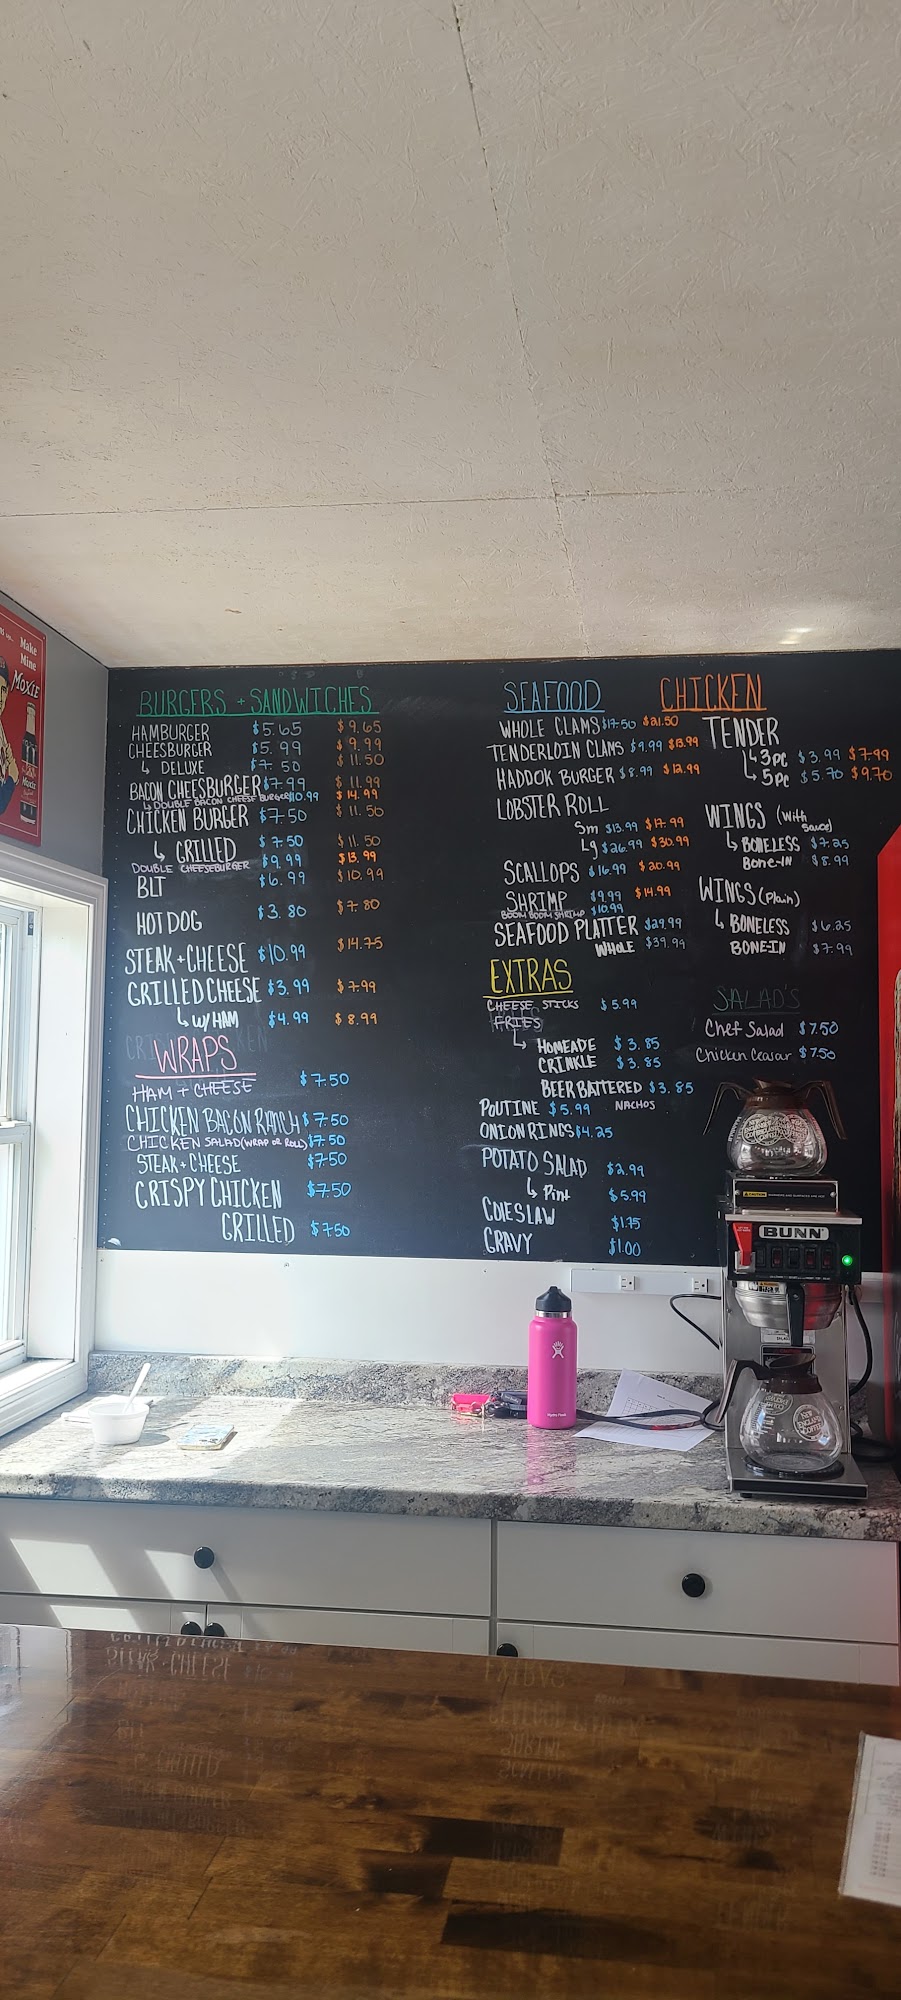 Make
Mine
MOXIE
BURGERS + SANDWICHES
HAMBURGER $5.65 $9.65
CHEESBURGER $5.99 $9.99
↳ DELUXE $7.50 $11.50
BACON CHEESBURGER $7.99 $11.99
↳ DOUBLE BACON CHEESE BURGER $10.99 $14.99
CHICKEN BURGER $7.50 $11.50
↳ GRILLED $7.50 $11.50
DOUBLE CHEESEBURGER $9.99 $13.99
BLT $6.99 $10.99
HOT DOG $3.80 $7.80
STEAK + CHEESE $10.99 $14.75
GRILLED CHEESE $3.99 $7.99
↳ W/ HAM $4.99 $8.99
WRAPS
HAM + CHEESE $7.50
CHICKEN BACON RANCH $7.50
CHICKEN SALAD (WRAP OR ROLL) $7.50
STEAK + CHEESE $7.50
CRISPY CHICKEN $7.50
GRILLED $7.50
SEAFOOD
WHOLE CLAMS $17.50 $21.50
TENDERLOIN CLAMS $9.99 $13.99
HADDOK BURGER $8.99 $12.99
LOBSTER ROLL
Sm $13.99 $17.99
Lg $26.99 $30.99
SCALLOPS $16.99 $20.99
SHRIMP $9.99 $14.99
BOOM BOOM SHRIMP $10.99
SEAFOOD PLATTER $29.99
WHOLE $39.99
EXTRAS
CHEESE STICKS $5.99
FRIES
↳ HOMEADE $3.85
CRINKLE $3.85
BEER BATTERED $3.85
POUTINE $5.99 NACHOS
ONION RINGS $4.25
POTATO SALAD $2.99
↳ Pint $5.99
COLESLAW $1.75
GRAVY $1.00
CHICKEN
TENDER
↳ 3pc $3.99 $7.99
↳ 5pc $5.70 $9.70
WINGS (with
sauce)
↳ BONELESS $7.25
BONE-IN $8.99
WINGS (Plain)
↳ BONELESS $6.25
BONE-IN $7.99
SALAD'S
Chef Salad $7.50
Chicken Ceasar $7.50
BUNN
CAUTION
Hydro Flask
NEW
ENGLAND
COFFEE